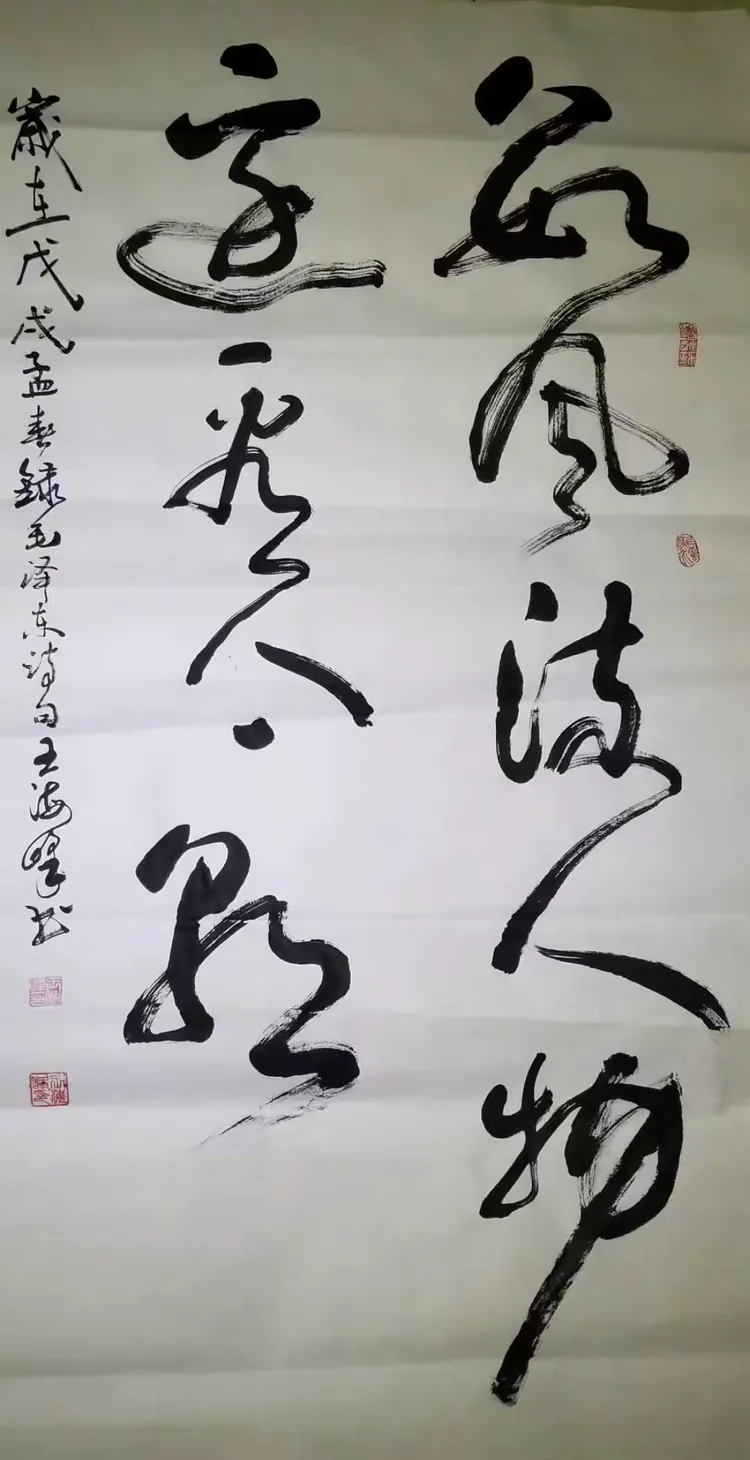 数风流人物
还看今朝
歲在戊戌孟春録毛泽东诗句王海峰书